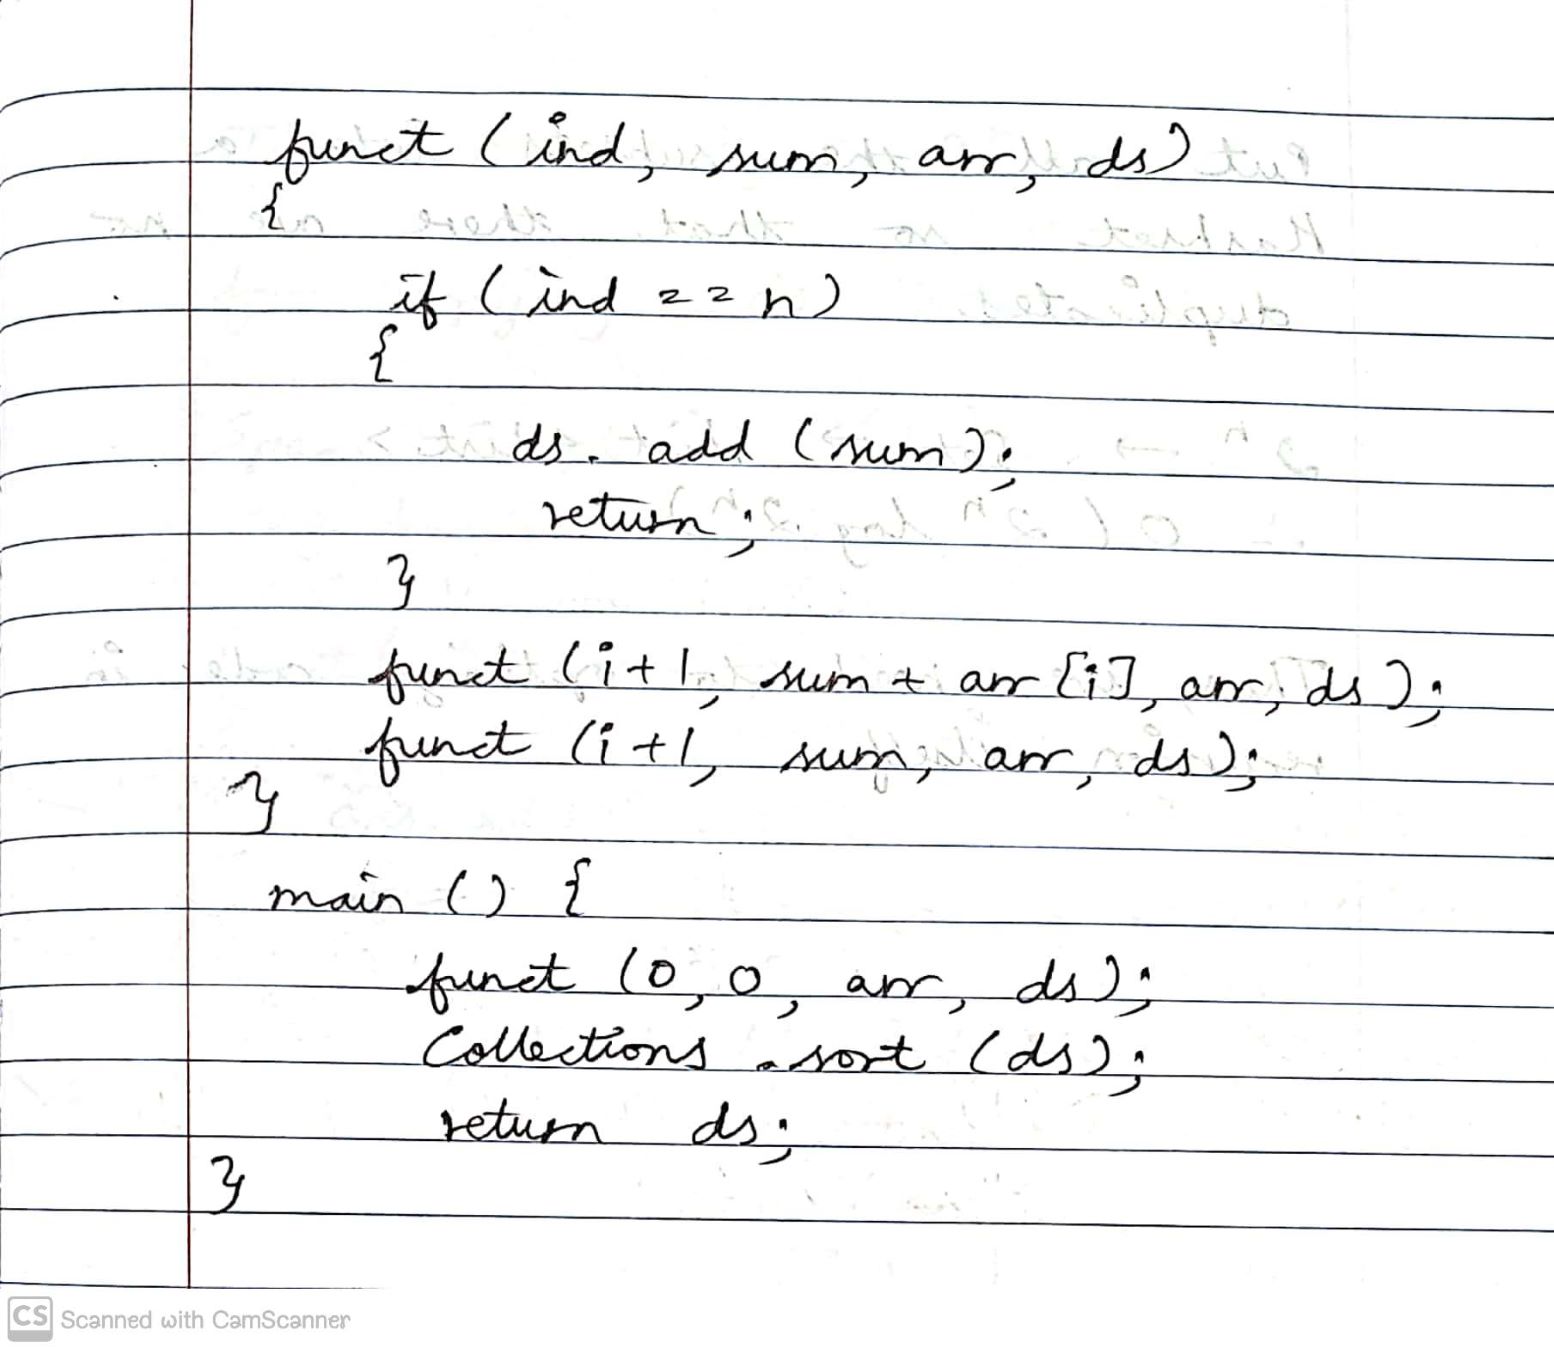 funct (ind, sum, arr, ds)
{
if (ind == n)
{
ds. add (sum);
return;
}
funct (i+1, sum + arr [i], arr, ds);
funct (i+1, sum, arr, ds);
}
main () {
funct (0, 0, arr, ds);
Collections . sort (ds);
return ds;
}
CS Scanned with CamScanner